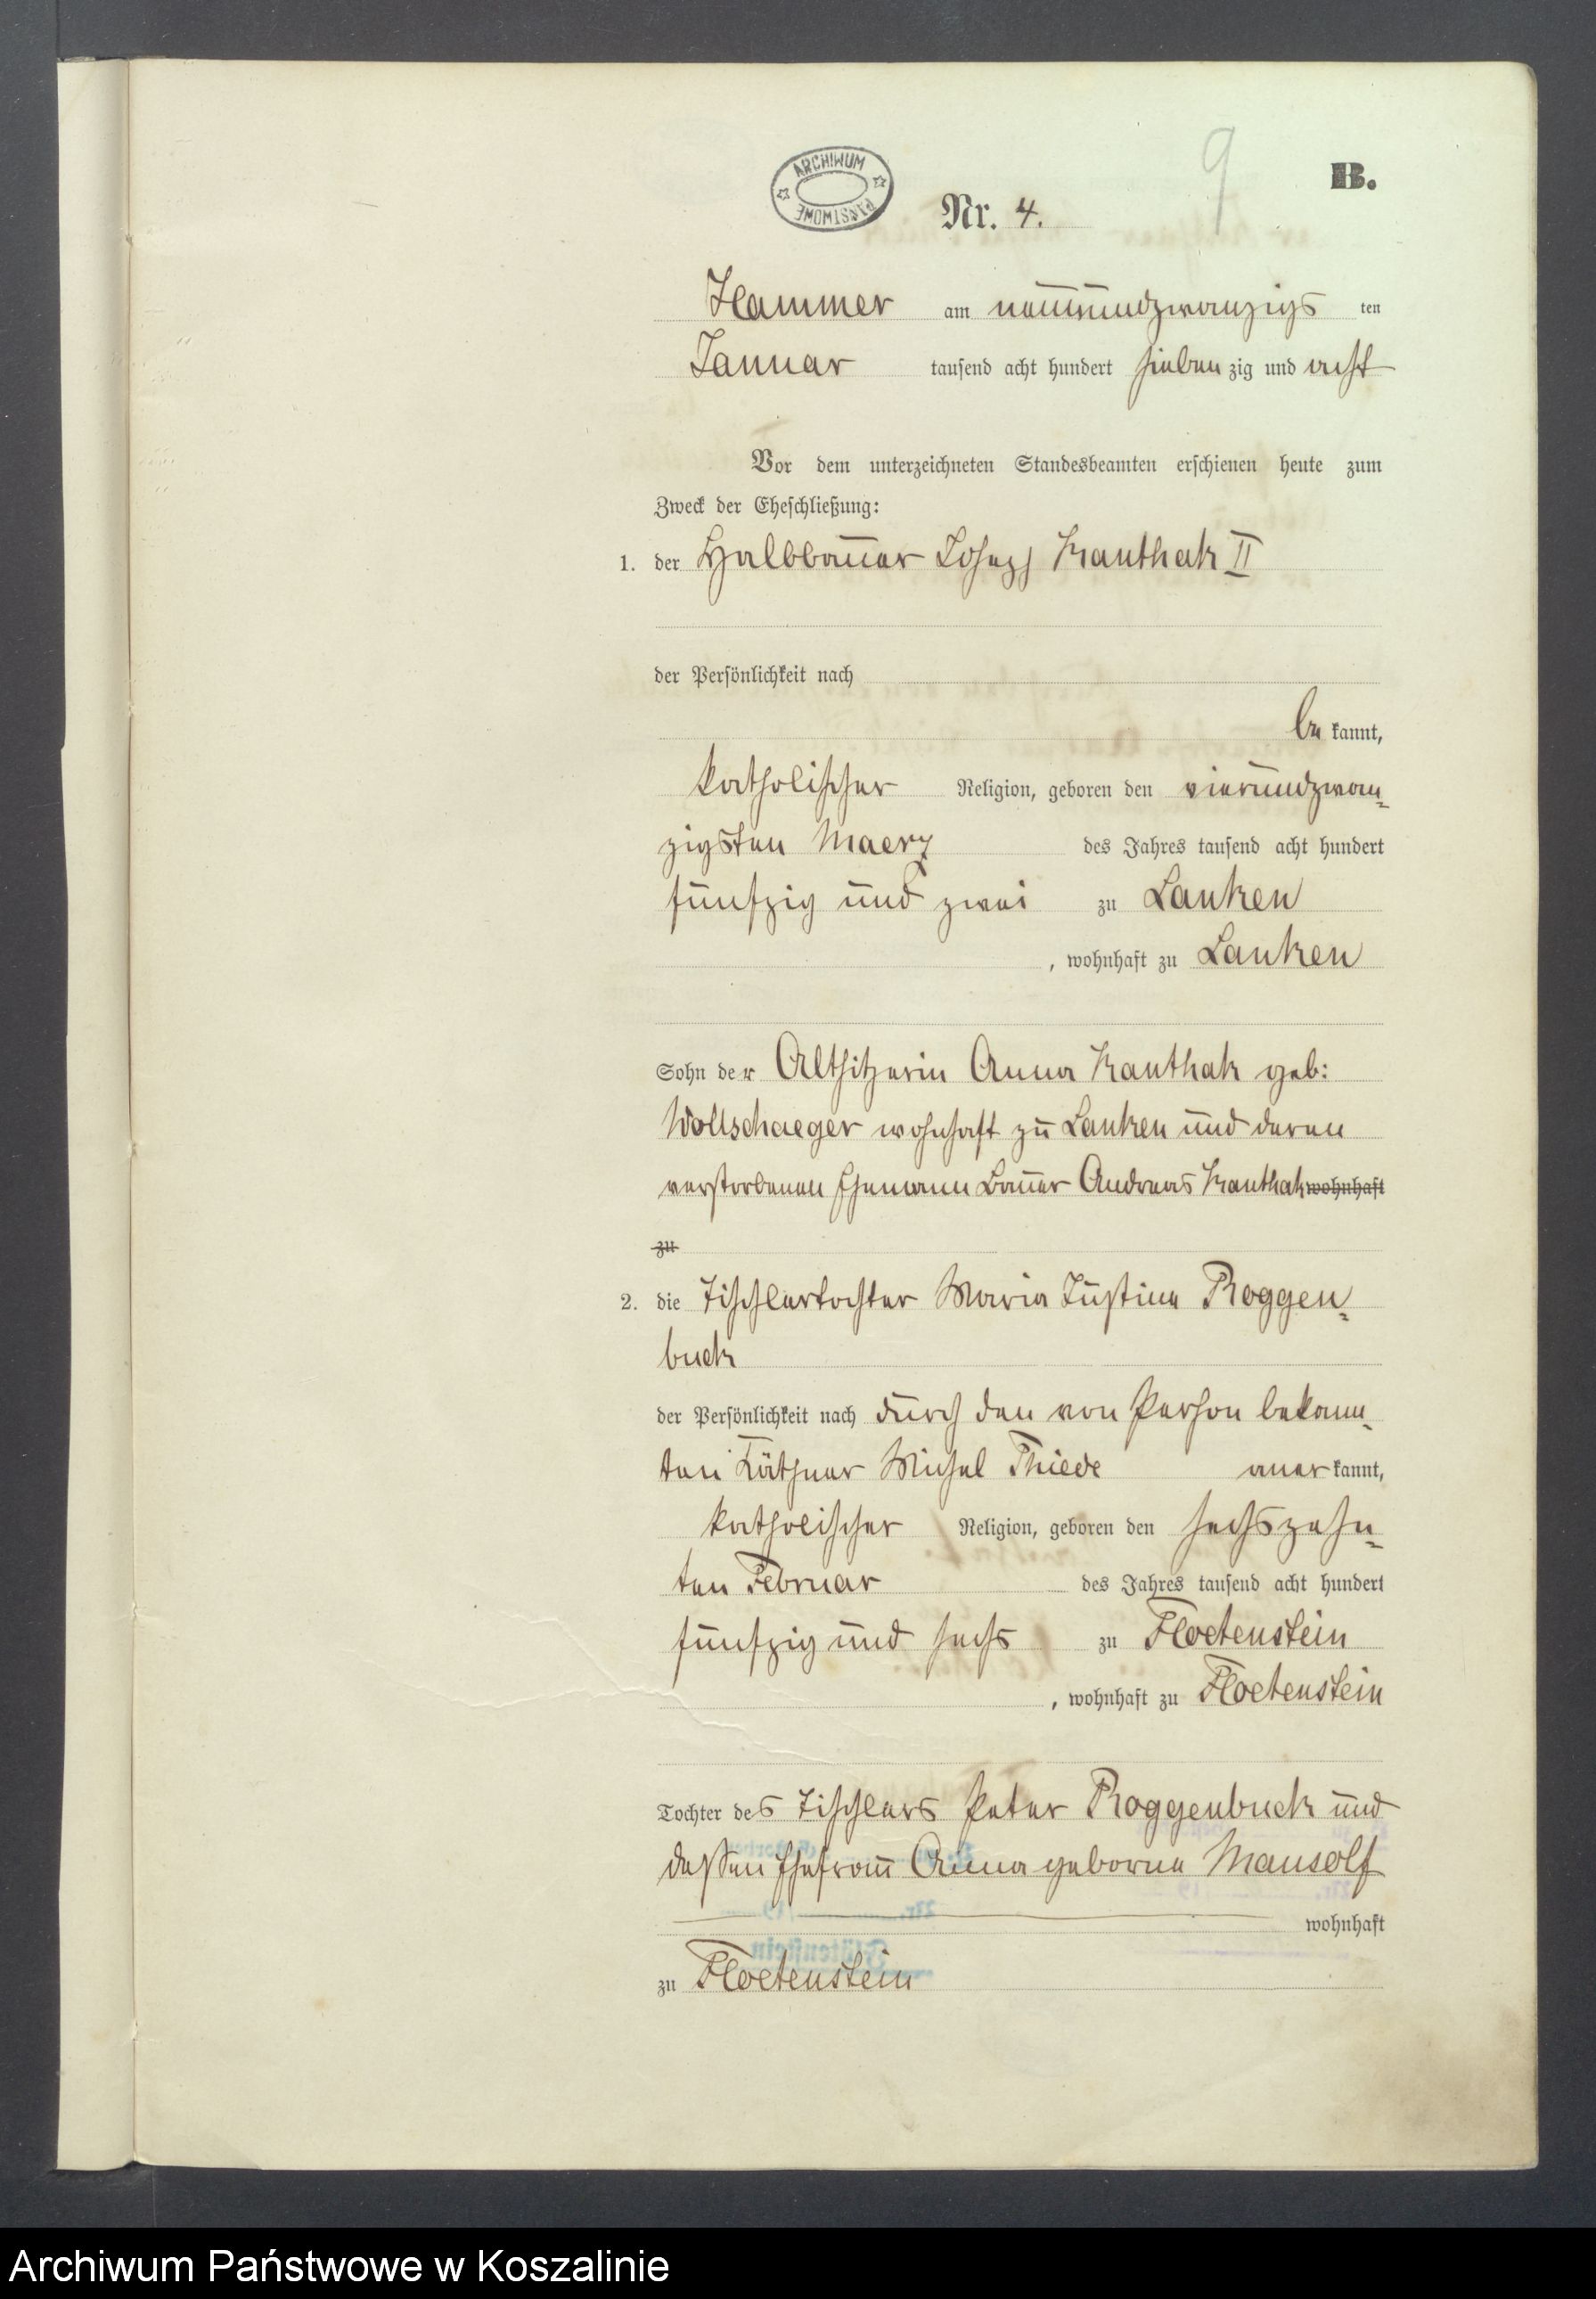 ARCHIWUM PAŃSTWOWE
9
B.
Nr. 4.
Hammer am neunundzwanzigs ten
Januar tausend acht hundert sieben zig und acht
Vor dem unterzeichneten Standesbeamten erschienen heute zum
Zweck der Eheschließung:
1. der Halbbauer Joseph Kanthak II
der Persönlichkeit nach
be kannt,
katholischer Religion, geboren den vierundzwan-
zigsten Maerz des Jahres tausend acht hundert
fünfzig und zwei zu Lanken
, wohnhaft zu Lanken
Sohn der Altsitzerin Anna Kanthak geb:
Wollschaeger wohnhaft zu Lanken und deren
verstorbenen Ehemann Bauer Andreas Kanthak wohnhaft
zu
2. die Tischlertochter Maria Justine Roggen-
buck
der Persönlichkeit nach durch den von Person bekann-
ten Käthner Michel Thiede aner kannt,
katholischer Religion, geboren den sechszehn-
ten Februar des Jahres tausend acht hundert
fünfzig und sechs zu Floetenstein
, wohnhaft zu Floetenstein
Tochter des Tischlers Peter Roggenbuck und
deßen Ehefrau Anna geborne Mansolf
wohnhaft
zu Floetenstein
Archiwum Państwowe w Koszalinie